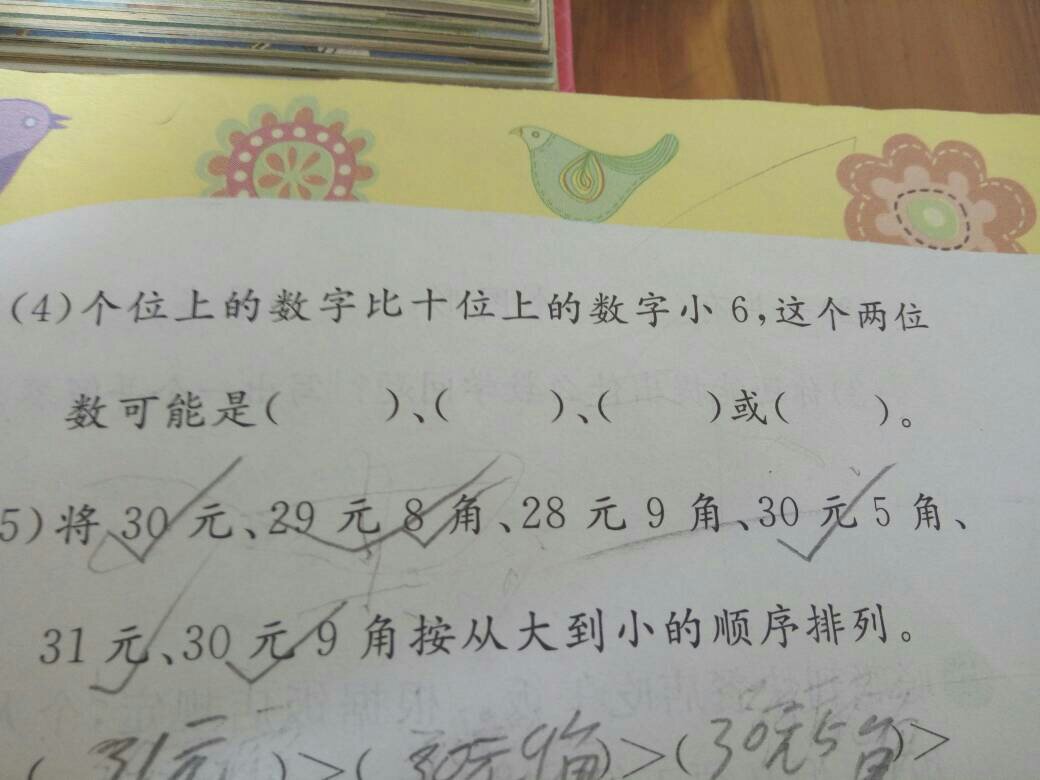 (4)个位上的数字比十位上的数字小6,这个两位
数可能是(　　)、(　　)、(　　)或(　　)。
5)将30元、29元8角、28元9角、30元5角、
31元、30元9角按从大到小的顺序排列。
(31元)>(30元9角)>(30元5角)>